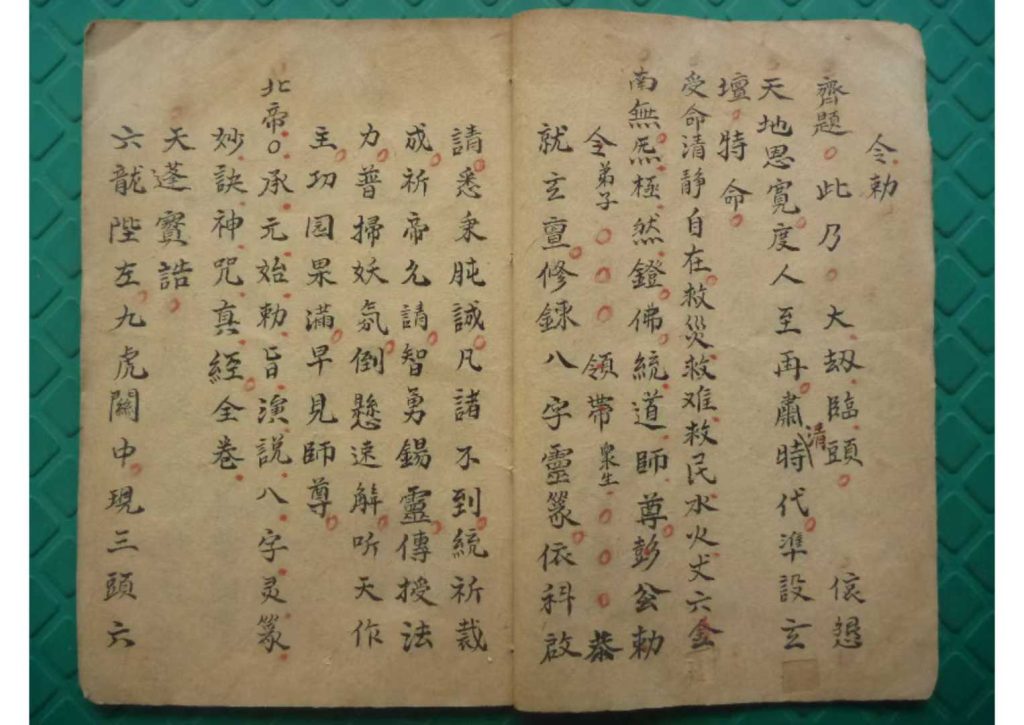 令勅
齊題此乃大刼臨頭 依愳
天地恩寬度人至再肅清時代準設玄
壇特命
受命清靜自在救災救难救民水火丈六金
南無炁極然鐙佛統道師尊彭公勅
令弟子 領帶眾生 恭
就玄亶修鍊八字靈篆依科啟
請悉秉肫誠凡諸不到統祈裁
成祈帝允請智勇錫靈傳授法
力普掃妖氛倒懸速解听天作
主功园果滿早見師尊
北帝承元始勅旨演説八字灵篆
妙訣神咒真經全卷
天蓬寳誥
六龍陛左九虎關中現三頭六